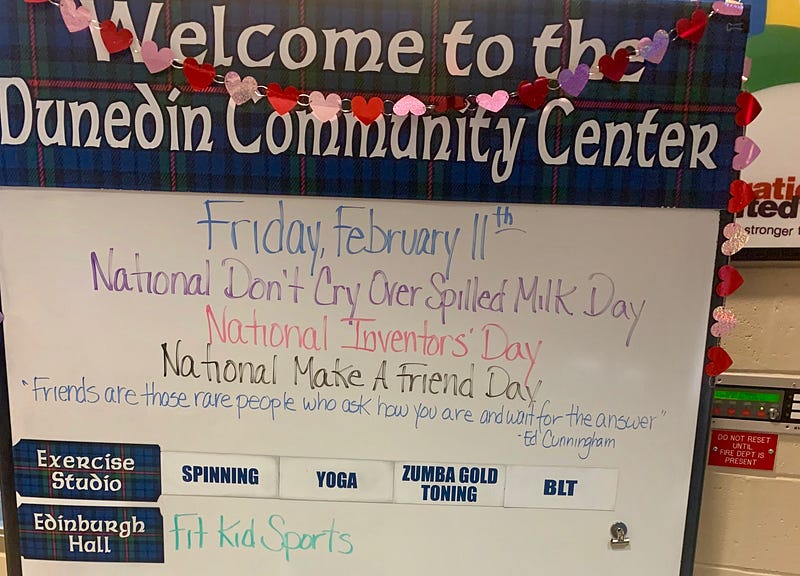 Welcome to the
Dunedin Community Center
Friday, February 11th
National Don't Cry Over Spilled Milk Day
National Inventors' Day
National Make A Friend Day
"Friends are those rare people who ask how you are and wait for the answer"
-Ed Cunningham
Exercise Studio
SPINNING
YOGA
ZUMBA GOLD TONING
BLT
Edinburgh Hall
Fit Kid Sports
stronger
DO NOT RESET
UNTIL
FIRE DEPT IS
PRESENT